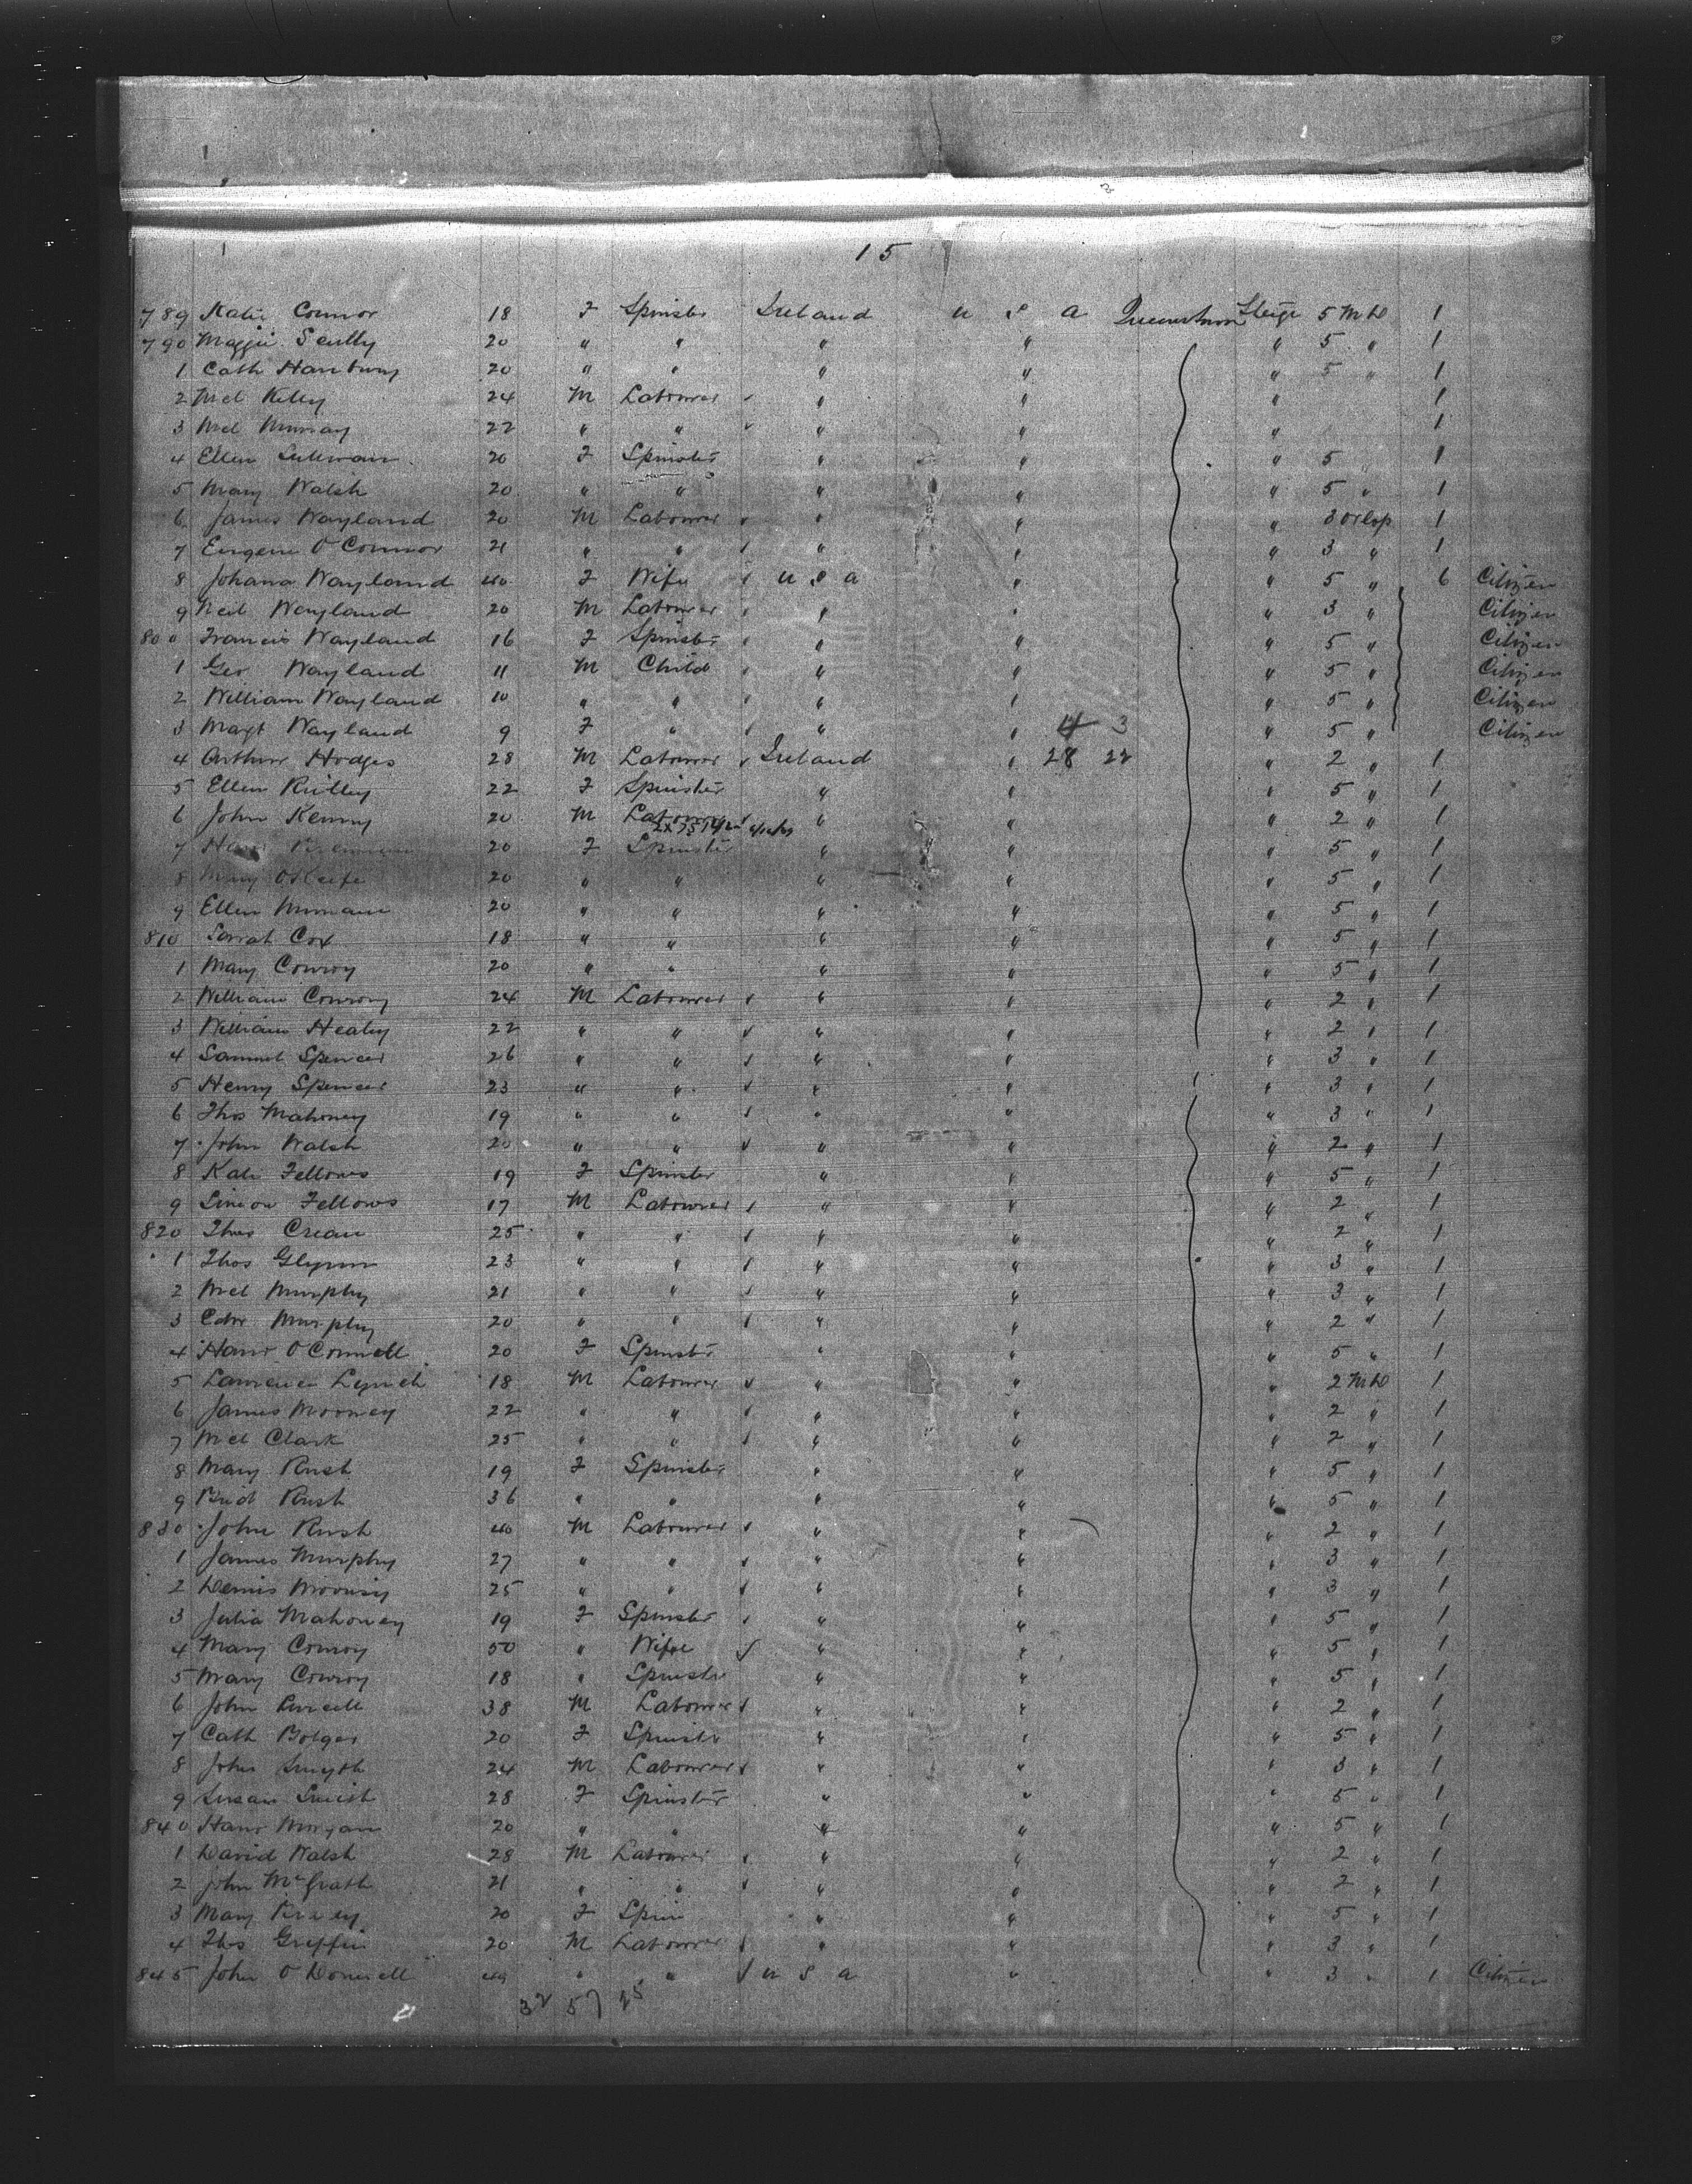 15
789 Katie Connor 18 F Spinster Ireland U S A Queenstown Steige 5 M D 1
790 Maggie Scully 20 " " " " " 5 " 1
1 Cath Hanbury 20 " " " " " 5 " 1
2 Mcl Kelly 24 M Labourer " " " 1
3 Mcl Murray 22 " " " " " 1
4 Ellen Sullivan 20 F Spinster " " " 5 1
5 Mary Walsh 20 " " " " " 5 " 1
6 James Wayland 20 M Labourer " " " 3 Orlop 1
7 Eugene O'Connor 21 " " " " " 3 " 1
8 Johana Wayland 40 F Wife U S A " " 5 " 6 Citizen
9 Neil Wayland 20 M Labourer " " " 3 " Citizen
800 Francis Wayland 16 F Spinster " " " 5 " Citizen
1 Geo Wayland 11 M Child " " " 5 " Citizen
2 William Wayland 10 " " " " " 5 " Citizen
3 Magt Wayland 9 F " " " 3 " 5 " Citizen
4 Arthur Hodges 28 M Labourer Ireland " 28 22 " 2 " 1
5 Ellen Reilley 22 F Spinster " " " 5 " 1
6 John Kenny 20 M Labourer " " " 2 " 1
7 20 F Spinster " " " 5 " 1
8 Mary O'Keefe 20 " " " " " 5 " 1
9 Ellen 20 " " " " " 5 " 1
810 Sarah Cox 18 " " " " " 5 " 1
1 Mary Conroy 20 " " " " " 5 " 1
2 William Conroy 24 M Labourer " " " 2 " 1
3 William Healy 22 " " " " " 2 " 1
4 Samuel Spencer 26 " " " " " 3 " 1
5 Henry Spencer 23 " " " " " 3 " 1
6 Thos Mahoney 19 " " " " " 3 " 1
7 John Walsh 20 " " " " " 2 " 1
8 Kate Fellows 19 F Spinster " " " 5 " 1
9 Simeon Fellows 17 M Labourer " " " 2 " 1
820 Thos Crean 25 " " " " " 2 " 1
1 Thos Glynn 23 " " " " " 3 " 1
2 Mcl Murphy 21 " " " " " 3 " 1
3 Edw Murphy 20 " " " " " 2 " 1
4 Hanr O'Connell 20 F Spinster " " " 5 " 1
5 Lawrence Lynch 18 M Labourer " " " 2 M D 1
6 James Mooney 22 " " " " " 2 " 1
7 Mcl Clark 25 " " " " " 2 " 1
8 Mary Rush 19 F Spinster " " " 5 " 1
9 Brid Rush 36 " " " " " 5 " 1
830 John Rush 40 M Labourer " " " 2 " 1
1 James Murphy 27 " " " " " 3 " 1
2 Dennis 25 " " " " " 3 " 1
3 Julia Mahoney 19 F Spinster " " " 5 " 1
4 Mary Conroy 50 " Wife " " " 5 " 1
5 Mary Conroy 18 " Spinster " " " 5 " 1
6 John Purcell 38 M Labourer " " " 2 " 1
7 Cath Bolger 20 F Spinster " " " 5 " 1
8 John Smyth 24 M Labourer " " " 3 " 1
9 Susan Smith 28 F Spinster " " " 5 " 1
840 Hanr Morgan 20 " " " " " 5 " 1
1 David Walsh 28 M Labourer " " " 2 " 1
2 John McGrath 21 " " " " " 2 " 1
3 Mary 20 F Spin " " " 5 " 1
4 Thos Griffin 20 M Labourer " " " 3 " 1
845 John O'Donnell 49 " " U S A " " 3 " 1 Citizen
32 57 25